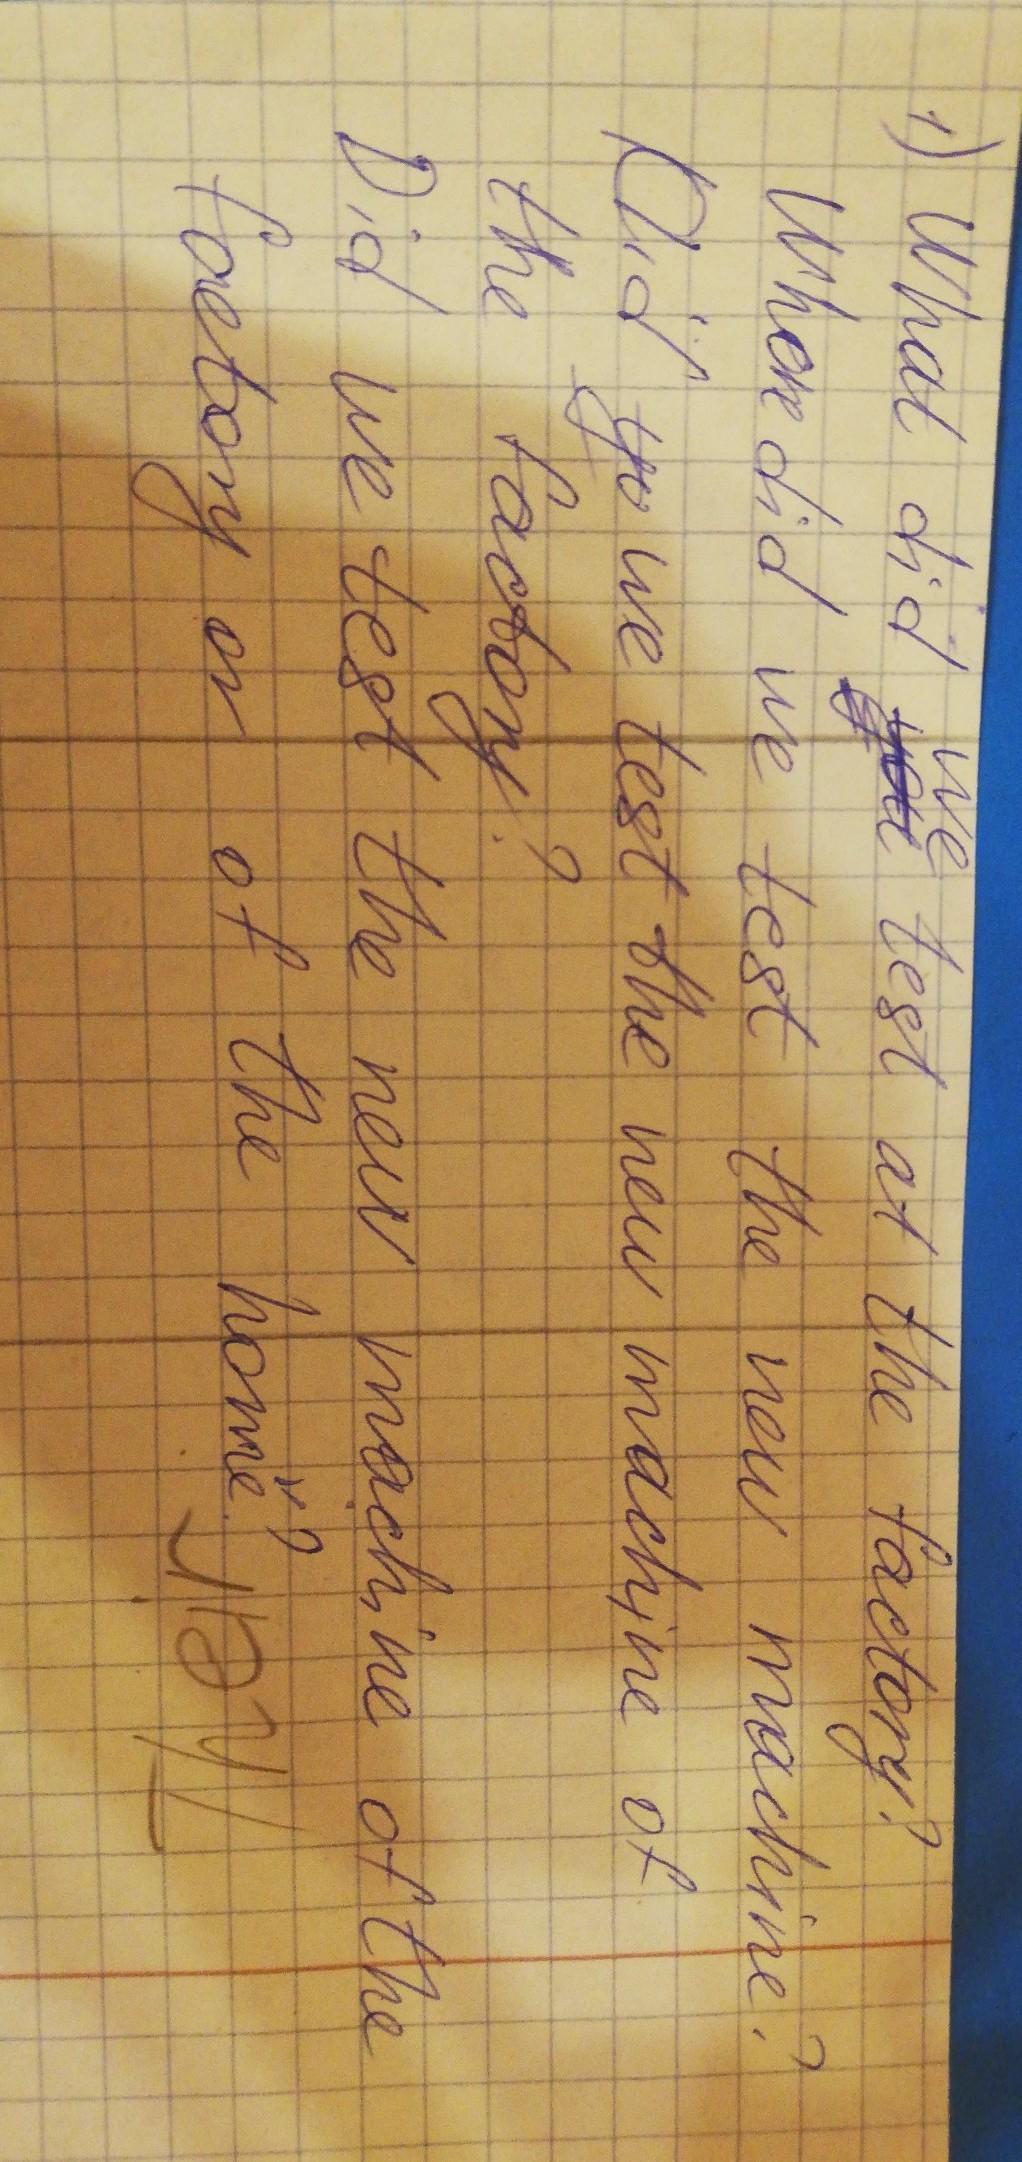 1) What did we test at the factory?
Where did we test the new machine?
Did we test the new machine of
the factory?
Did we test the new machine of the
factory or of the home?